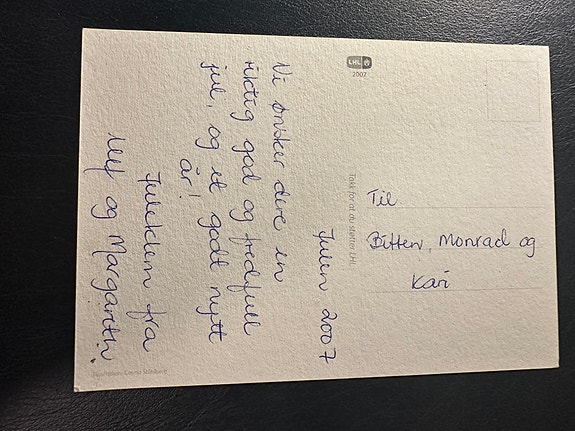 Julen 2007
Vi ønsker dere en
riktig god og fredfull
jul, og et godt nytt
år!
Juleklem fra
Ulf og Margareth
LHL
2007
Takk for at du støtter LHL
Til
Bitten, Monrad og
Kari